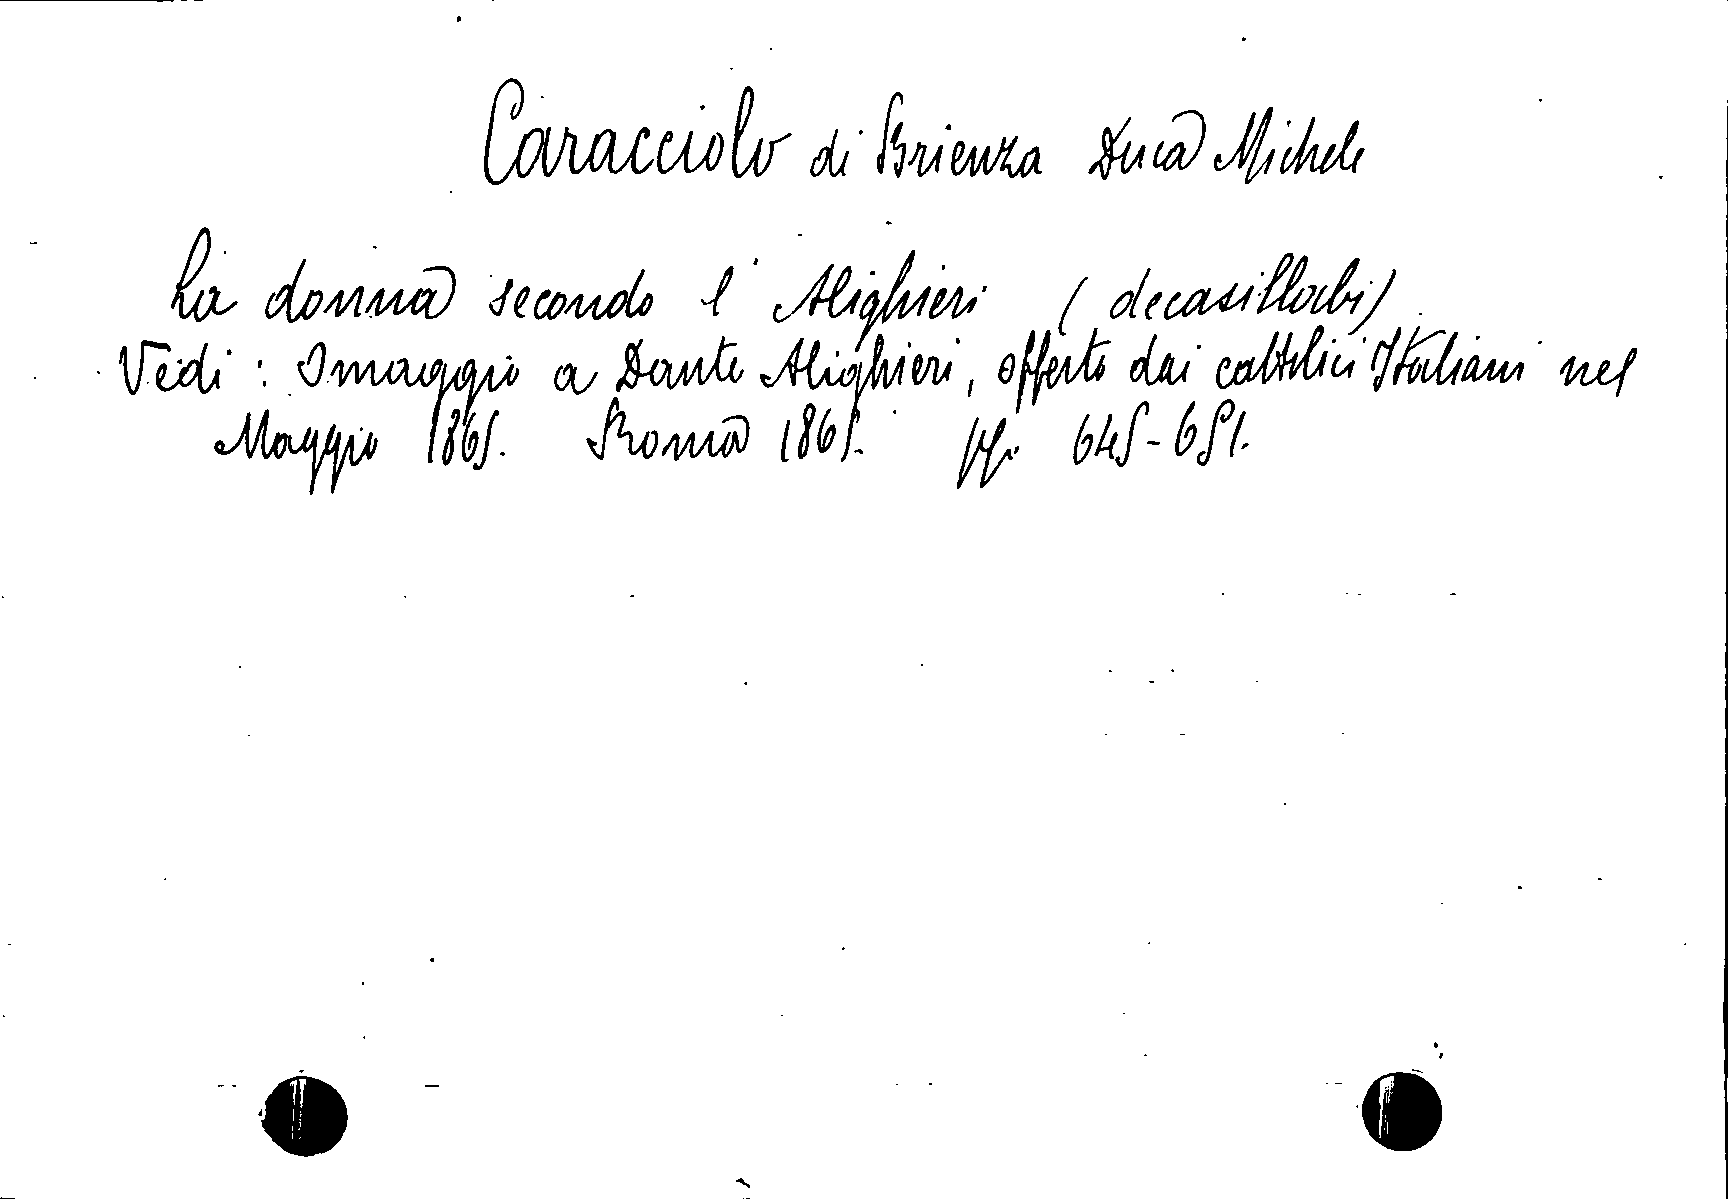 Caracciolo di Brienza Duca Michele
La donna secondo l'Alighieri (decasillabi)
Vedi: Omaggio a Dante Alighieri, offerto dai cattolici Italiani nel
Maggio 1865. Roma 1865. pp. 645-651.